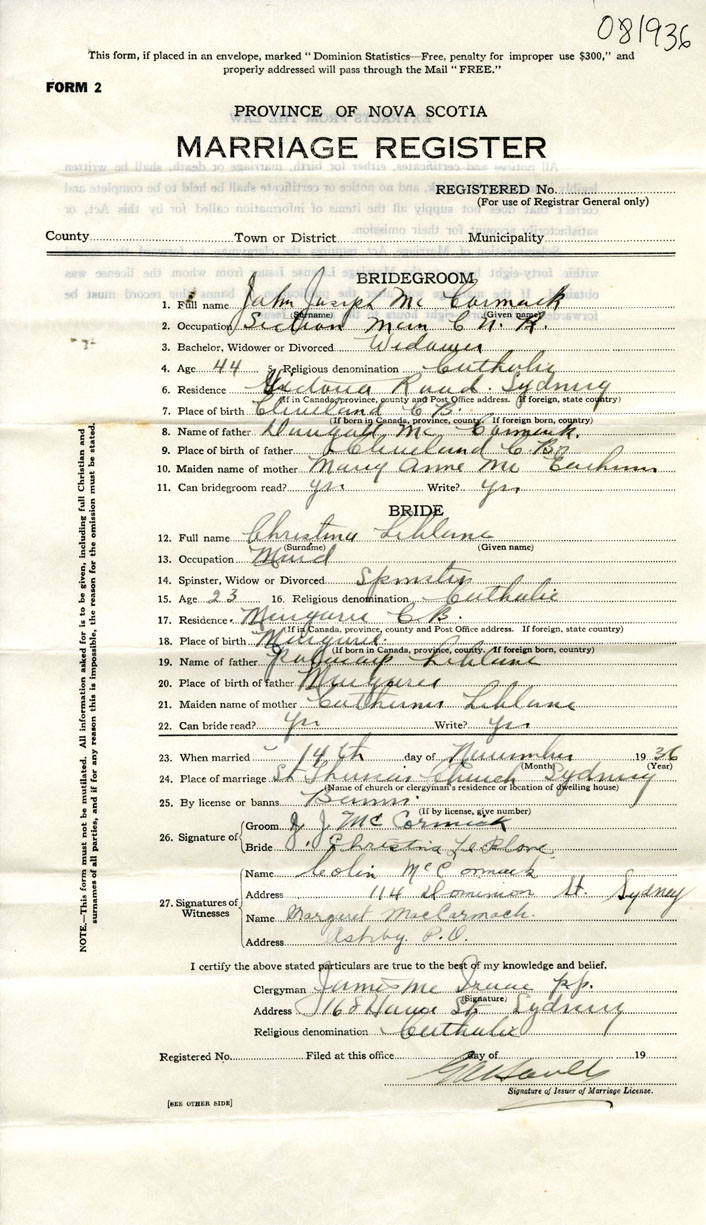 081936
This form, if placed in an envelope, marked "Dominion Statistics—Free, penalty for improper use $300," and
properly addressed will pass through the Mail "FREE."
FORM 2
PROVINCE OF NOVA SCOTIA
MARRIAGE REGISTER
REGISTERED No.
(For use of Registrar General only)
County Town or District Municipality
BRIDEGROOM
1. Full name John Joseph Mc Cormack
(Surname) (Given name)
2. Occupation Section Man C. N. R.
3. Bachelor, Widower or Divorced Widower
4. Age 44 5. Religious denomination Catholic
6. Residence Victoria Road Sydney
(If in Canada, province, county and Post Office address. If foreign, state country)
7. Place of birth Cleveland C.B.
(If born in Canada, province, county. If foreign born, country)
8. Name of father Dougall Mc Cormack
9. Place of father Cleveland C.B.
10. Maiden name of mother Mary Anne Mc Eachern
11. Can bridegroom read? yes Write? yes
BRIDE
12. Full name Christina Leblanc
(Surname) (Given name)
13. Occupation Maid
14. Spinster, Widow or Divorced Spinster
15. Age 23 16. Religious denomination Catholic
17. Residence Margaree C B
(If in Canada, province, county and Post Office address. If foreign, state country)
18. Place of birth Margaree
(If born in Canada, province, county. If foreign born, country)
19. Name of father Leblanc
20. Place of birth of father Margaree
21. Maiden name of mother Catherine Leblanc
22. Can bride read? yes Write? yes
23. When married 14th day of November 1936
(Month) (Year)
24. Place of marriage St Theresas Church Sydney
(Name of church or clergyman's residence or location of dwelling house)
25. By license or banns Banns
(If by license, give number)
26. Signature of Groom J. J. McCormack
Bride Christina Le Blanc
27. Signatures of Witnesses
Name Colin McCormack
Address 114 Dominion St. Sydney
Name Margaret MacCormack.
Address Ashby P.O.
I certify the above stated particulars are true to the best of my knowledge and belief.
Clergyman James Mc Isaac p.p.
(Signature)
Address St. Sydney
Religious denomination Catholic
Registered No. Filed at this office day of 19
Signature of Issuer of Marriage License.
[SEE OTHER SIDE]
NOTE.—This form must not be mutilated. All information asked for is to be given, including full Christian and
surnames of all parties, and if for any reason this is impossible, the reason for the omission must be stated.